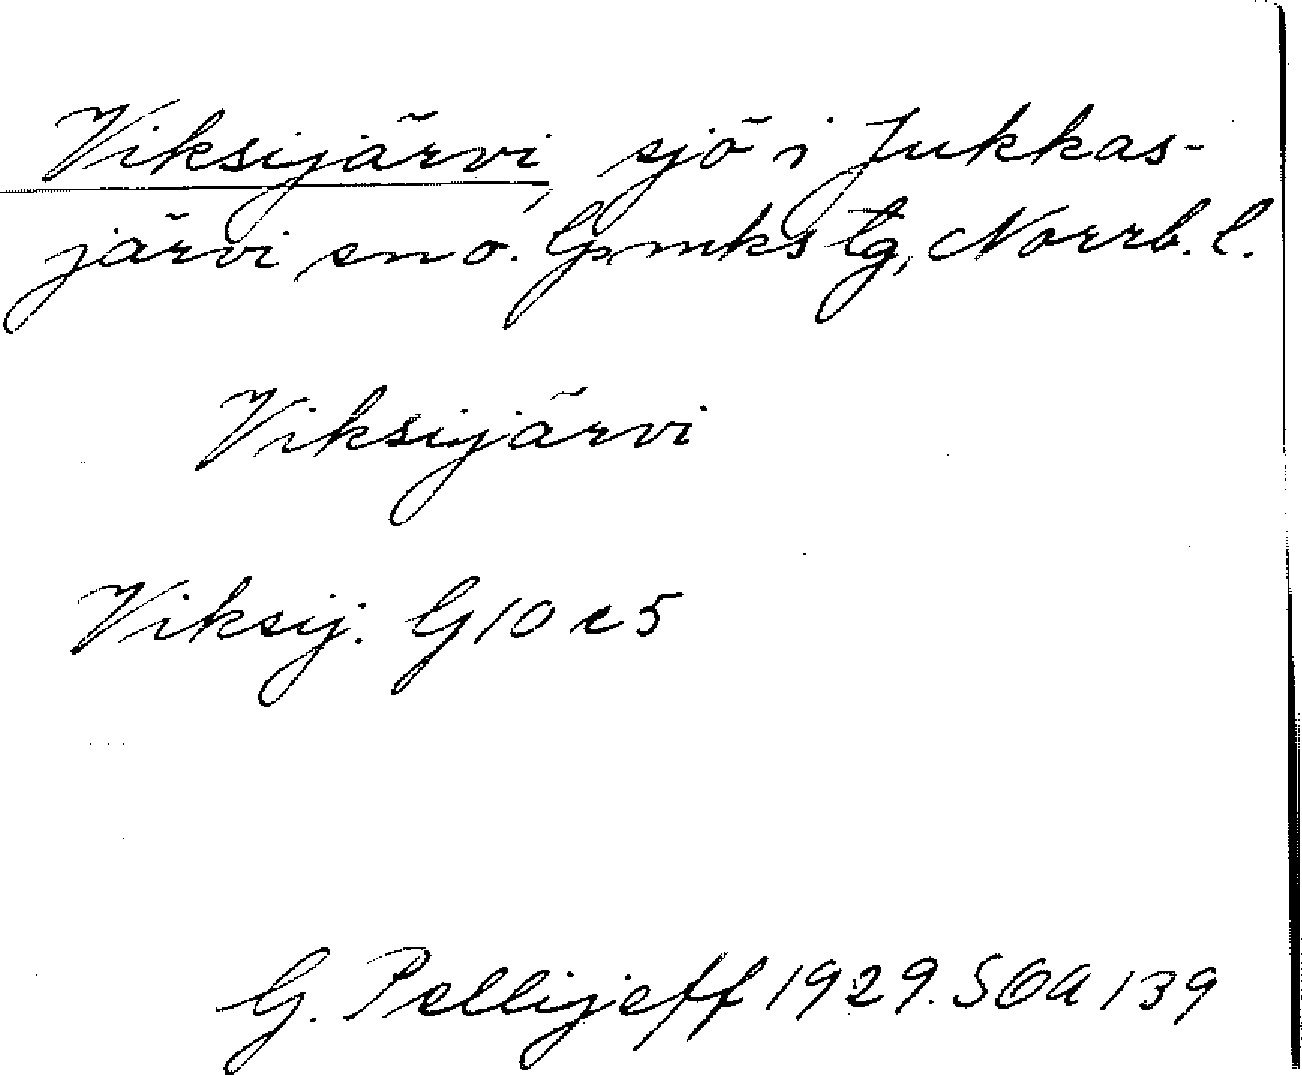 Viksijärvi, sjö i Jukkas-
järvi sn o. Gmks tg, Norrb. l.
Viksijärvi
Viksij. G 10 c 5
G. Pellijeff 1929. SOA 139